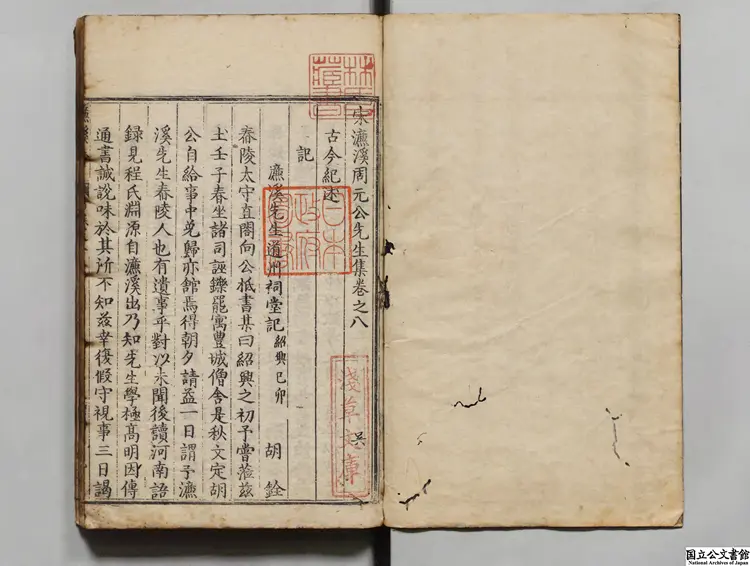 宋濂溪周元公先生集卷之八
古今紀述
記
濂溪先生道州祠堂記 紹興己卯 胡銓
舂陵太守直閣向公抵書某曰紹興之初予嘗蒞茲
土壬子春坐諸司誣鑠罷寓豐城僧舍是秋文定胡
公自給事中免歸亦館焉得朝夕請益一日謂予濂
溪先生舂陵人也有遺事乎對以未聞後讀河南語
録見程氏淵源自濂溪出乃知先生學極髙明因傳
通書誠說味於其所不知兹幸復假守視事三日謁
林氏藏書
日本政府圖書
淺草文庫
国立公文書館
National Archives of Japan